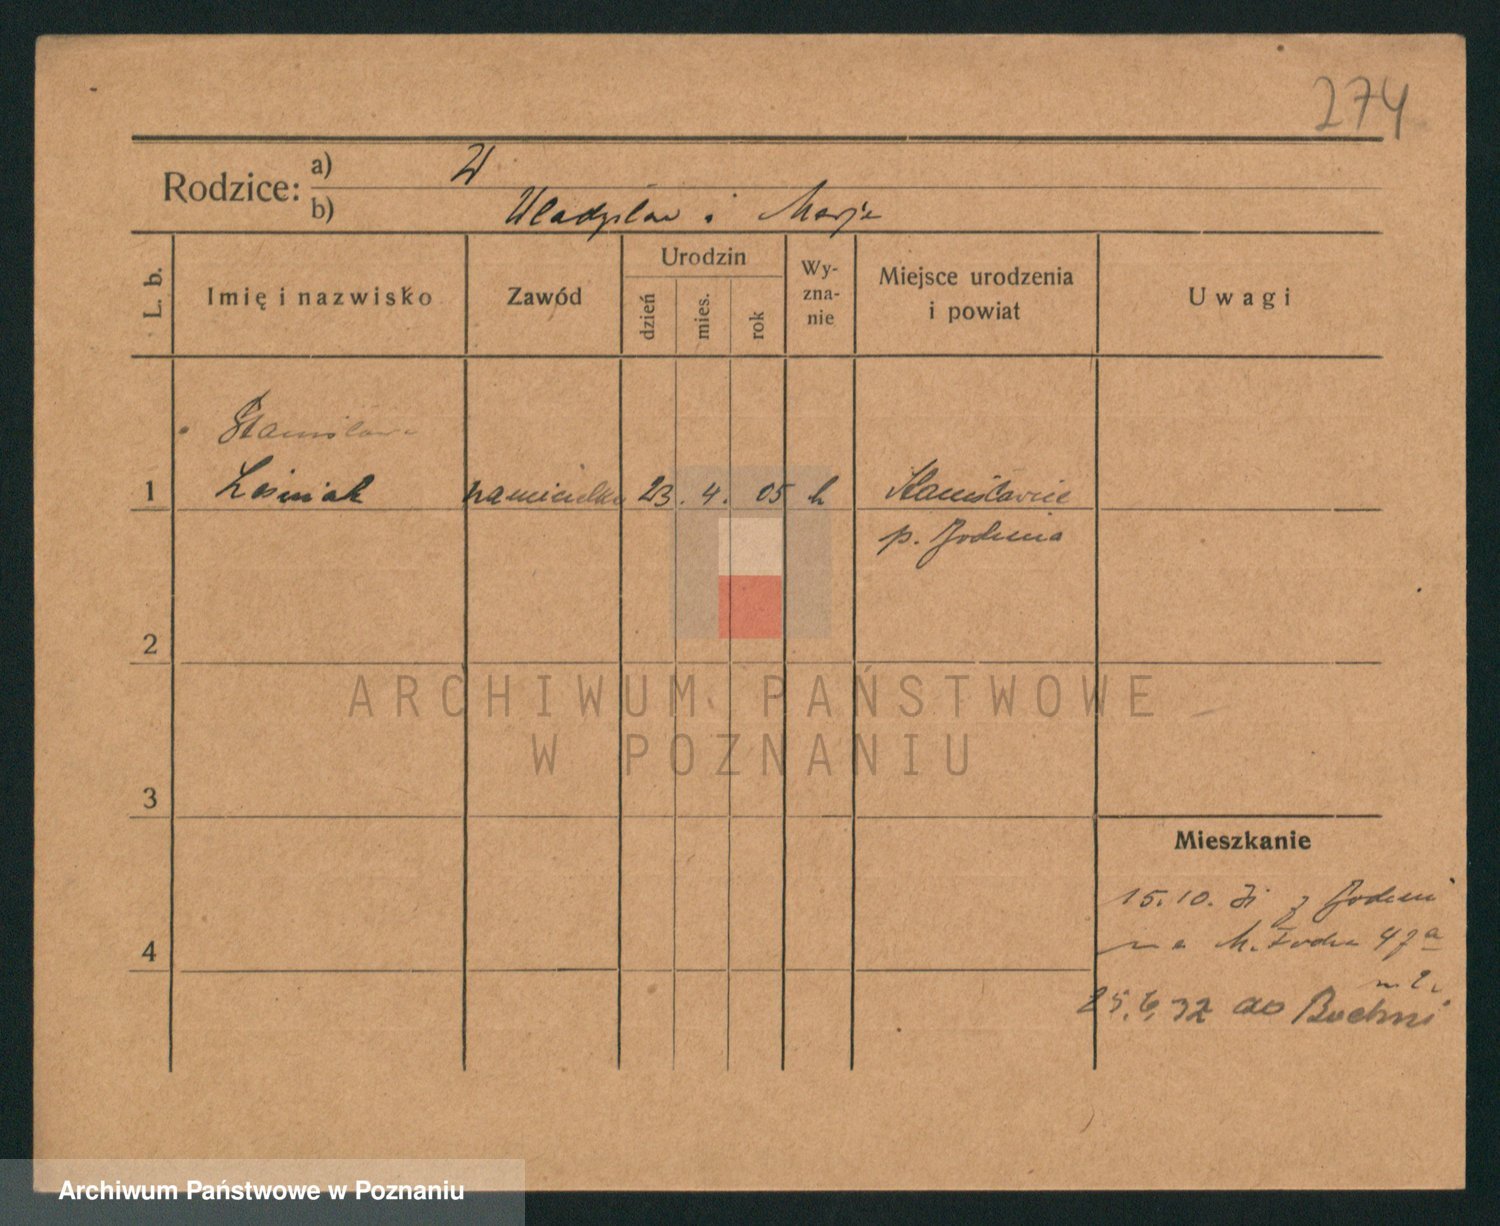 274
Rodzice:
a) W
b) Władysław i Marja
L. b.
Imię i nazwisko
Zawód
Urodzin
dzień
mies.
rok
Wy-
zna-
nie
Miejsce urodzenia
i powiat
Uwagi
Stanisława
1 Leśniak nauczycielka 23. 4. 05 k Stanisławice
p. Bochnia
2
3
4
Mieszkanie
15.10. 31 z Bochni
na 47a
25.6.32 do Bochni
ARCHIWUM PAŃSTWOWE
W POZNANIU
Archiwum Państwowe w Poznaniu